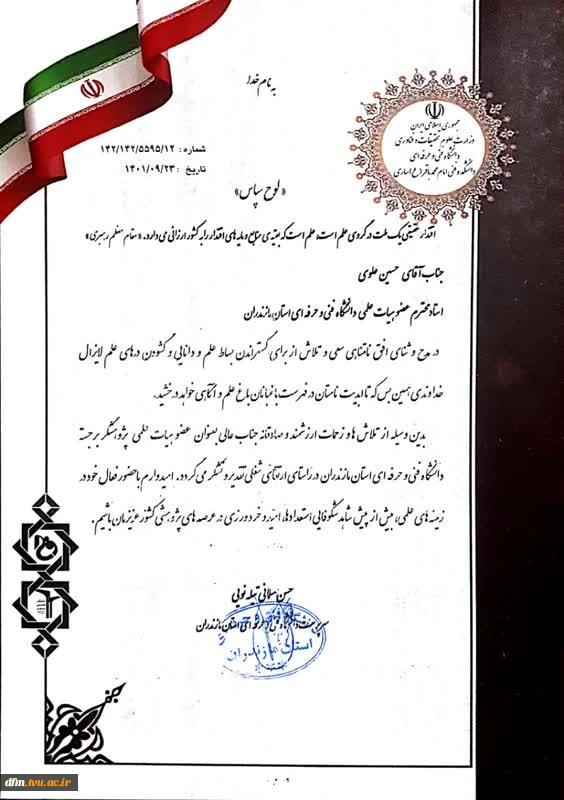 به نام خدا
جمهوری اسلامی ایران
وزارت علوم تحقیقات و فناوری
دانشگاه فنی و حرفه ای
دانشکده فنی امام محمد باقر (ع) ساری
شماره : ۱۴۲/۱۴۲/۵۵۹۵/۱۲
تاریخ : ۱۴۰۱/۰۹/۲۳
«لوح سپاس»
اقتدار حقیقی یک ملت در گروی علم است، علم است که بقیه ی منابع و مایه های اقتدار را به کشور ارزانی می دارد. «مقام معظم رهبری»
جناب آقای حسین علوی
استاد محترم عضو هیات علمی دانشگاه فنی و حرفه ای استان مازندران
در مدح و ثنای افق نامتناهی سعی و تلاش از برای گستراندن بساط علم و دانایی و گشودن درهای علم لایزال
خداوندی همین بس که تا ابدیت نامتان در فهرست باغبانان باغ علم و آگاهی خواهد درخشید.
بدین وسیله از تلاش ها و زحمات ارزشمند و صادقانه جناب عالی بعنوان عضو هیات علمی پژوهشگر برجسته
دانشگاه فنی و حرفه ای استان مازندران در راستای ارتقای شغلی تقدیر و تشکر می گردد. امیدوارم با حضور فعال خود در
زمینه های علمی، بیش از پیش شاهد شکوفایی استعدادها، امید و خردورزی در عرصه های پژوهشی کشور عزیزمان باشیم.
حسن سلمانی تیله نویی
سرپرست دانشگاه فنی و حرفه ای استان مازندران
استان مازندران
dfm.tvu.ac.ir